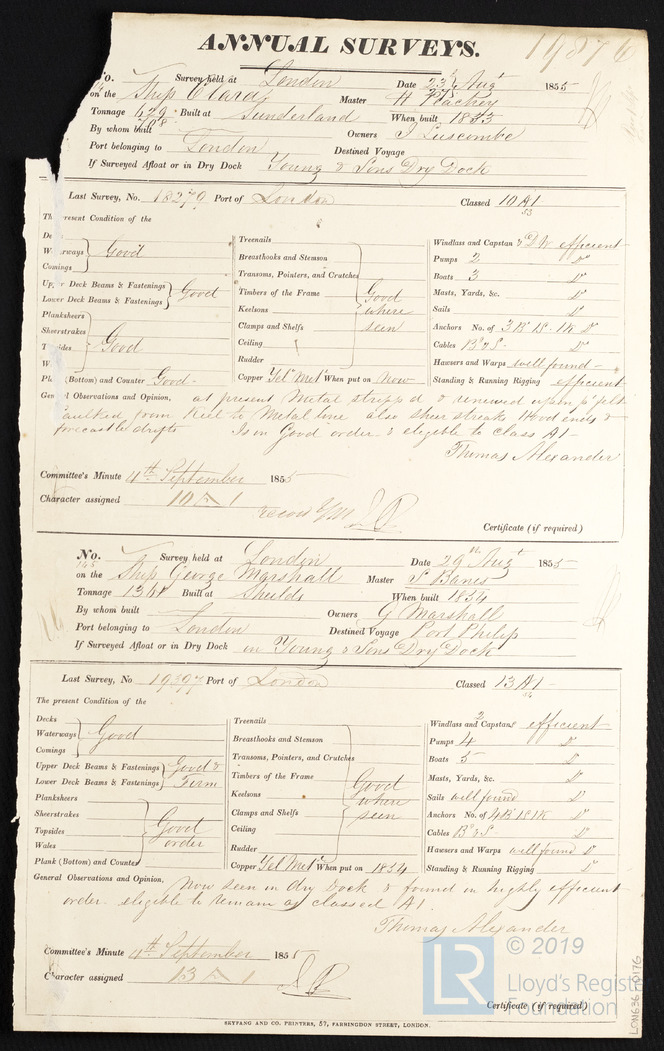 ANNUAL SURVEYS.
19876
No. Survey held at London Date 23d Augt 1855
on the Ship Clara Master H Peachey
Tonnage 629 Built at Sunderland When built 1853
708
By whom built Owners J Luscombe
Port belonging to London Destined Voyage
If Surveyed Afloat or in Dry Dock Young & Sons Dry Dock
Last Survey, No. 18279 Port of London Classed 10 A1
53
The present Condition of the
Waterways Good
Comings
Upper Deck Beams & Fastenings Good
Lower Deck Beams & Fastenings
Planksheers
Sheerstrakes
Topsides Good
Plank (Bottom) and Counter Good
Treenails
Breasthooks and Stemson
Transoms, Pointers, and Crutches
Timbers of the Frame Good
Keelsons where
Clamps and Shelfs seen
Ceiling
Rudder
Copper Yel Metl When put on Now
Windlass and Capstan & D W efficient
Pumps 2 Do
Boats 3 Do
Masts, Yards, &c. Do
Sails Do
Anchors No. of 3 B 1 S 1 K Do
Cables B & S Do
Hawsers and Warps well found
Standing & Running Rigging efficient
General Observations and Opinion, at present Metal stripp'd & renewed upon felt
caulked from Keel to Metal line also sheer streaks Wood ends &
forecastle drifts Is in Good order & eligible to class A1
Thomas Alexander
Committee's Minute 4th September 1855
Character assigned 10 A 1
Certificate (if required)
No. Survey held at London Date 29th Augt 1855
145
on the Ship George Marshall Master S Banes
Tonnage 1361 Built at Shields When built 1854
By whom built Owners G Marshall
Port belonging to London Destined Voyage Port Philip
If Surveyed Afloat or in Dry Dock in Young & Sons Dry Dock
16
Last Survey, No 19397 Port of London Classed 13 A1
54
The present Condition of the
Decks
Waterways Good
Comings
Upper Deck Beams & Fastenings Good &
Lower Deck Beams & Fastenings Firm
Planksheers
Sheerstrakes Good
Topsides order
Wales
Plank (Bottom) and Counter
Treenails
Breasthooks and Stemson
Transoms, Pointers, and Crutches
Timbers of the Frame Good
Keelsons where
Clamps and Shelfs seen
Ceiling
Rudder
Copper Yel Metl When put on 1854
Windlass and 2 Capstans efficient
Pumps 4 Do
Boats 5 Do
Masts, Yards, &c. Do
Sails well found Do
Anchors No. of 4 B 1 S 1 K Do
Cables B & S Do
Hawsers and Warps well found Do
Standing & Running Rigging Do
General Observations and Opinion, Now seen in dry Dock & found in highly efficient
order eligible to remain as classed A1.
Thomas Alexander
Committee's Minute 4th September 1855
Character assigned 13 A 1
Certificate (if required)
SKYPANG AND CO. PRINTERS, 57, FARRINGDON STREET, LONDON.
LR © 2019
Lloyd's Register
Foundation